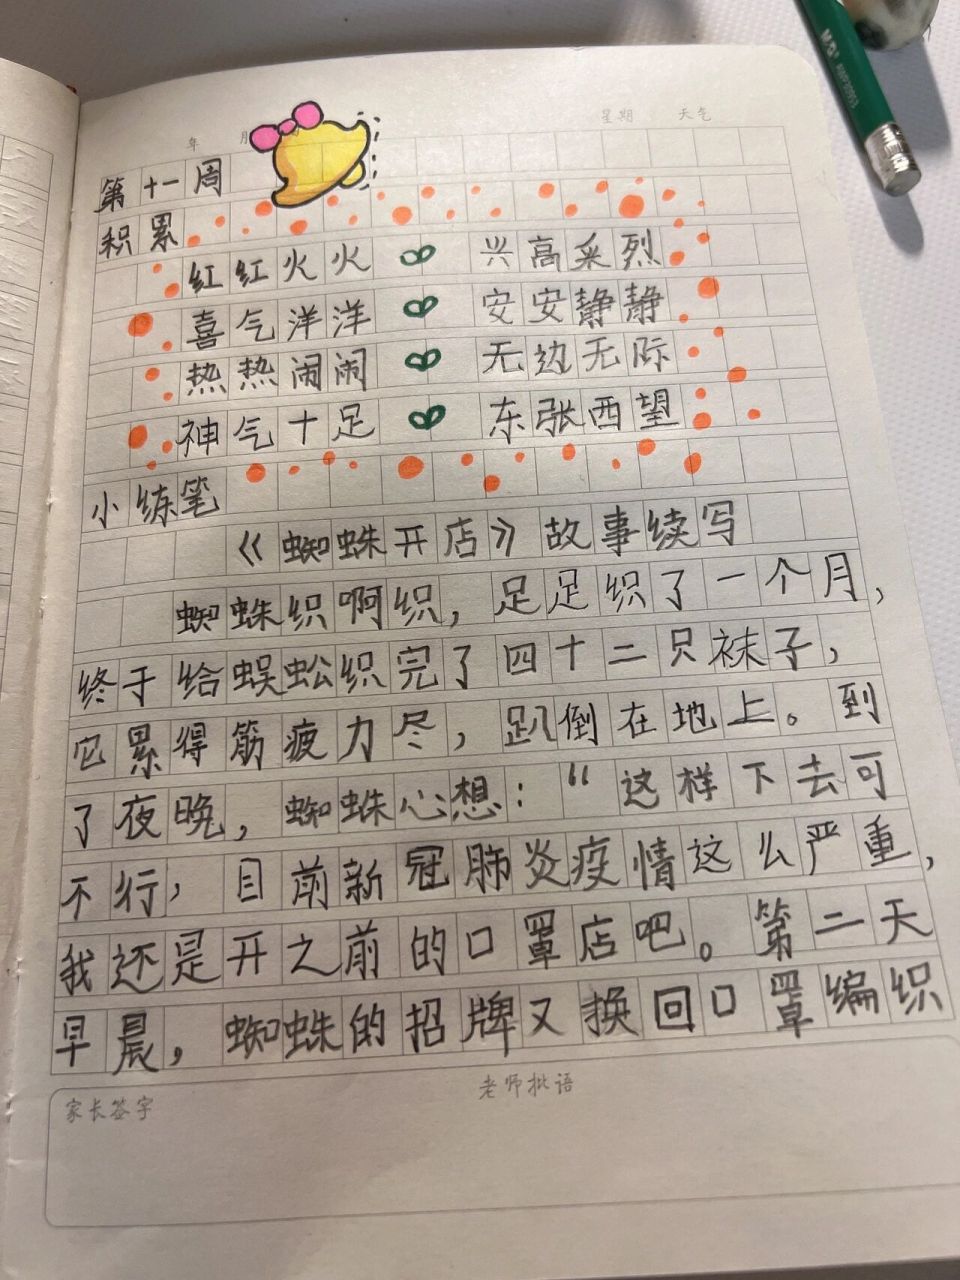 年 月 星期 天气
第十一周
积累
红红火火 兴高采烈
喜气洋洋 安安静静
热热闹闹 无边无际
神气十足 东张西望
小练笔
《蜘蛛开店》故事续写
蜘蛛织啊织，足足织了一个月，
终于给蜈蚣织完了四十二只袜子，
它累得筋疲力尽，趴倒在地上。到
了夜晚，蜘蛛心想：“这样下去可
不行，目前新冠肺炎疫情这么严重，
我还是开之前的口罩店吧。第二天
早晨，蜘蛛的招牌又换回口罩编织
家长签字 老师批语
M&G